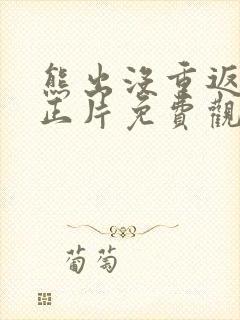 熊出没重返
正片免費觀
葡萄